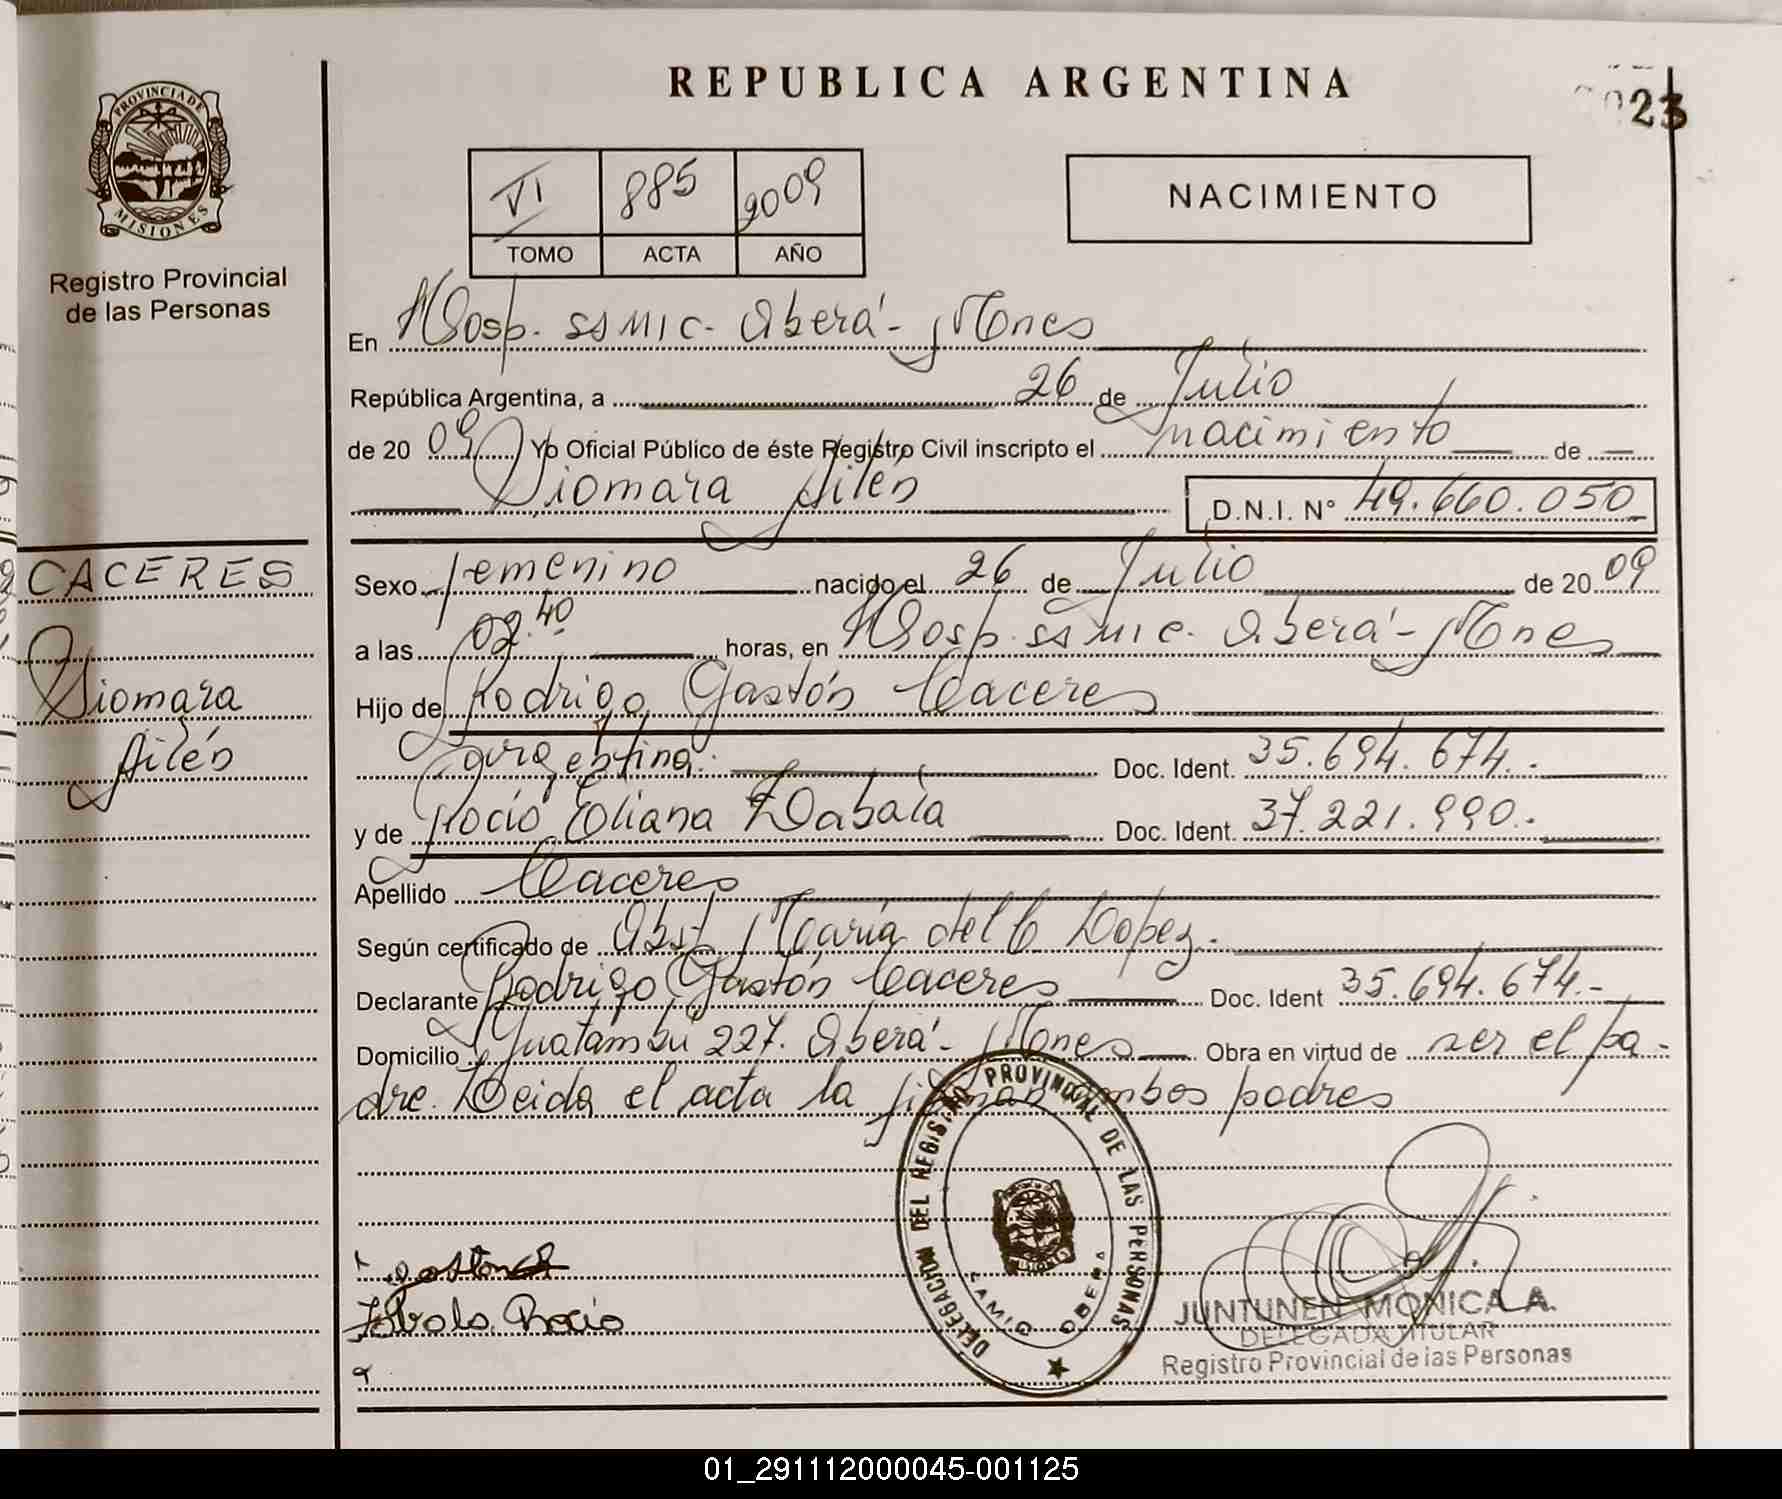 REPUBLICA ARGENTINA
023
PROVINCIA DE
MISIONES
Registro Provincial
de las Personas
VI 885 2009
TOMO ACTA AÑO
NACIMIENTO
En Hosp. SSMIC. Oberá - Mnes
República Argentina, a 26 de Julio
de 20 09 Yo Oficial Público de éste Registro Civil inscripto el nacimiento de
Xiomara Ailén D.N.I. N° 49.660.050
CACERES
Xiomara
Ailén
Sexo femenino nacido el 26 de Julio de 20 09
a las 02.40 horas, en Hosp. SSMIC. Oberá - Mnes
Hijo de Rodrigo Gastón Caceres
argentina. Doc. Ident. 35.694.674.-
y de Rocío Eliana Zabala Doc. Ident. 37.221.990.-
Apellido Caceres
Según certificado de Obst. María del C Lopez.
Declarante Rodrigo Gastón Caceres Doc. Ident 35.694.674.-
Domicilio Guatambú 227. Oberá - Mnes Obra en virtud de ser el pa-
dre. Leida el acta la firman ambos padres
DELEGACION DEL REGISTRO PROVINCIAL DE LAS PERSONAS
MISIONES
OBERA
Gaston
Zabala Rocio
JUNTUNEN MONICA A.
DELEGADA TITULAR
Registro Provincial de las Personas
01_291112000045-001125